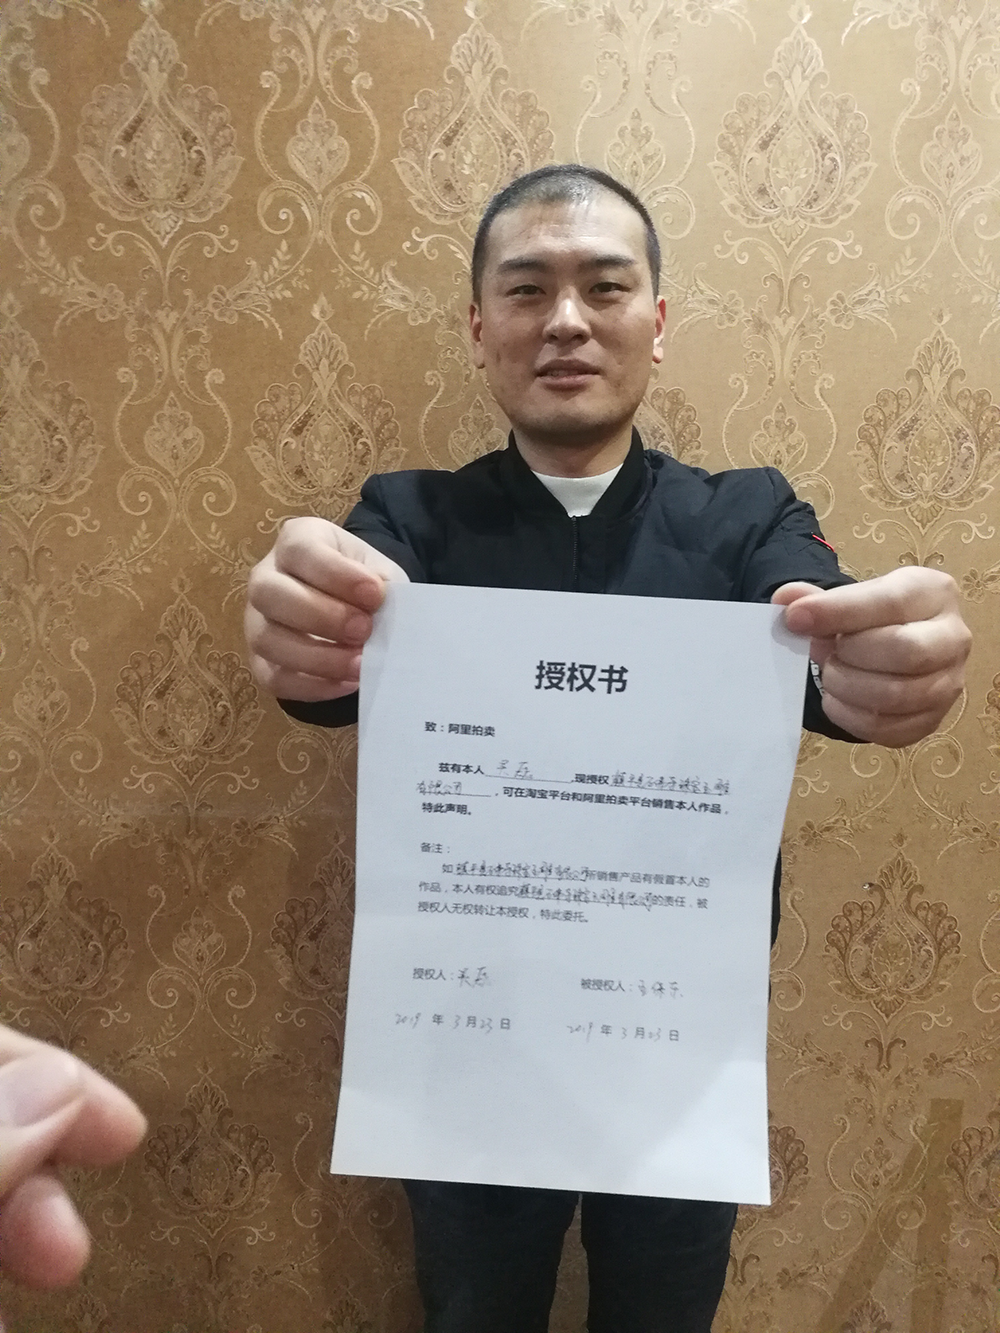 授权书
致：阿里拍卖
兹有本人 吴磊 ,现授权 镇平县
有限公司 ，可在淘宝平台和阿里拍卖平台销售本人作品，
特此声明。
备注：
如 镇平县 珠宝玉雕有限公司所销售产品有假冒本人的
作品，本人有权追究 珠宝玉雕有限公司的责任，被
授权人无权转让本授权，特此委托。
授权人：吴磊 被授权人：王保东
2019 年 3 月 23 日 2019 年 3 月 23 日